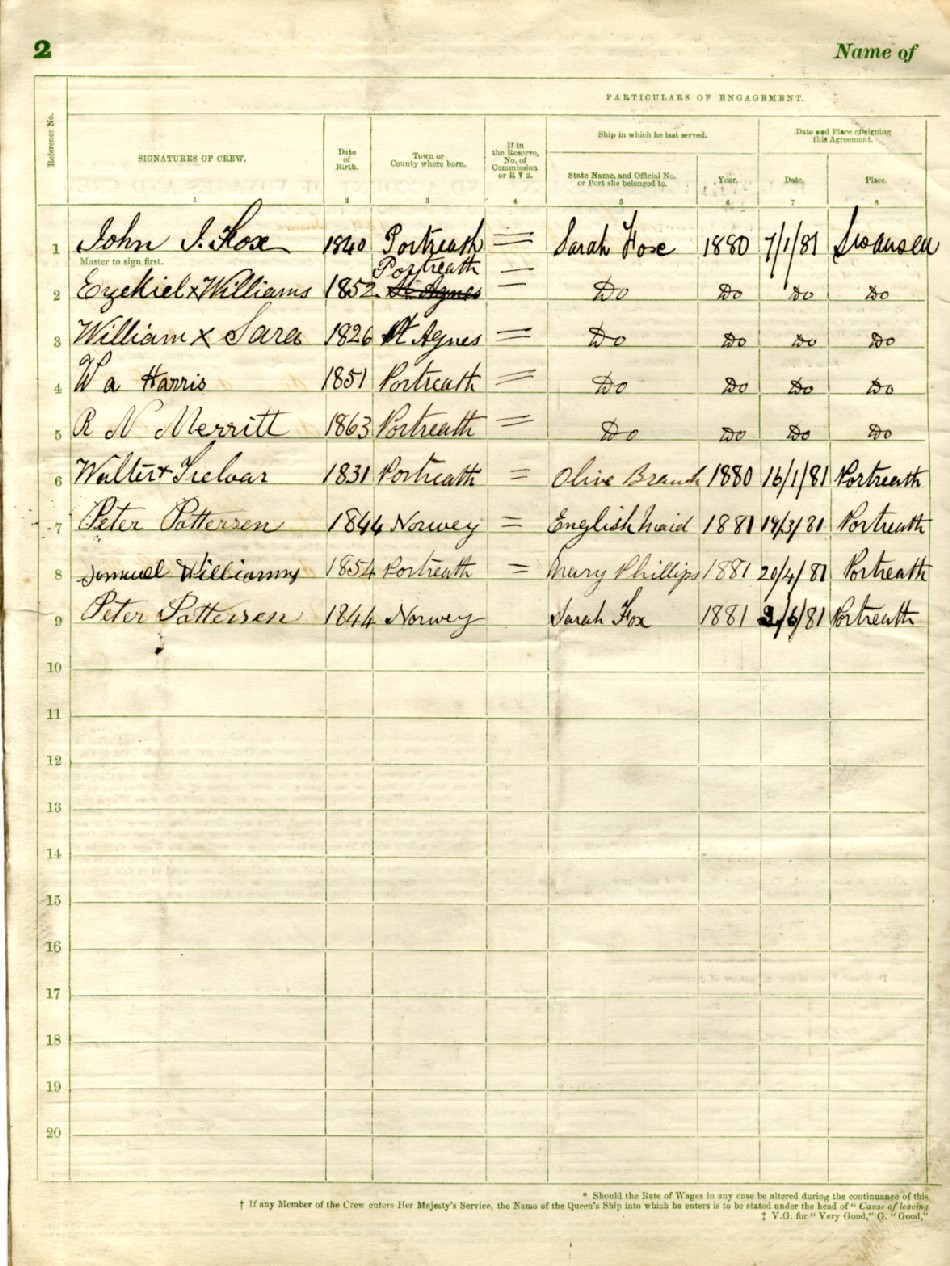 2 Name of
PARTICULARS OF ENGAGEMENT.
Reference No. SIGNATURES OF CREW. Date of Birth. Town or County where born. If in the Reserve, No. of Commission or R V 2. Ship in which he last served. Date and Place of signing this Agreement.
State Name, and Official No. or Port she belonged to. Year. Date. Place.
1 2 3 4 5 6 7 8
1 John J. Foxe 1840 Portreath = Sarah Foxe 1880 7/1/81 Swansea
Master to sign first.
Portreath
2 Ezekiel x Williams 1852 St Agnes = Do Do Do Do
3 William x Sara 1826 St Agnes = Do Do Do Do
4 W a Harris 1851 Portreath = Do Do Do Do
5 R N Merritt 1863 Portreath = Do Do Do Do
6 Walter x Trelvar 1831 Portreath = Olive Branch 1880 16/1/81 Portreath
7 Peter Pattersen 1844 Norwey = English Maid 1881 19/3/81 Portreath
8 Samuel Williams 1854 Portreath = Mary Phillips 1881 20/4/81 Portreath
9 Peter Pattersen 1844 Norwey Sarah Fox 1881 2/6/81 Portreath
10
11
12
13
14
15
16
17
18
19
20
* Should the Rate of Wages in any case be altered during the continuance of this
† If any Member of the Crew enters Her Majesty's Service, the Name of the Queen's Ship into which he enters is to be stated under the head of "Cause of leaving
‡ V.G. for "Very Good," G. "Good,"